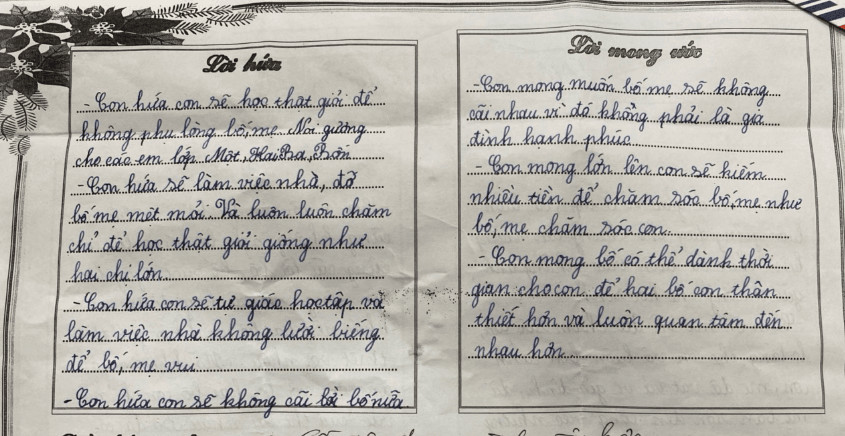 Lời hứa
- Con hứa con sẽ học thật giỏi để
không phụ lòng bố, mẹ. Nêu gương
cho các em lớp Một, Hai, Ba, Bốn
- Con hứa sẽ làm việc nhà, đỡ
bố mẹ mệt mỏi. Và luôn luôn chăm
chỉ để học thật giỏi giống như
hai chị lớn
- Con hứa con sẽ tự giác học tập và
làm việc nhà không lười biếng
để bố, mẹ vui
- Con hứa con sẽ không cãi lời bố nữa
Lời mong ước
- Con mong muốn bố mẹ sẽ không
cãi nhau vì đó không phải là gia
đình hạnh phúc
- Con mong lớn lên con sẽ kiếm
nhiều tiền để chăm sóc bố, mẹ như
bố, mẹ chăm sóc con
- Con mong bố có thể dành thời
gian cho con để hai bố con thân
thiết hơn và luôn quan tâm đến
nhau hơn